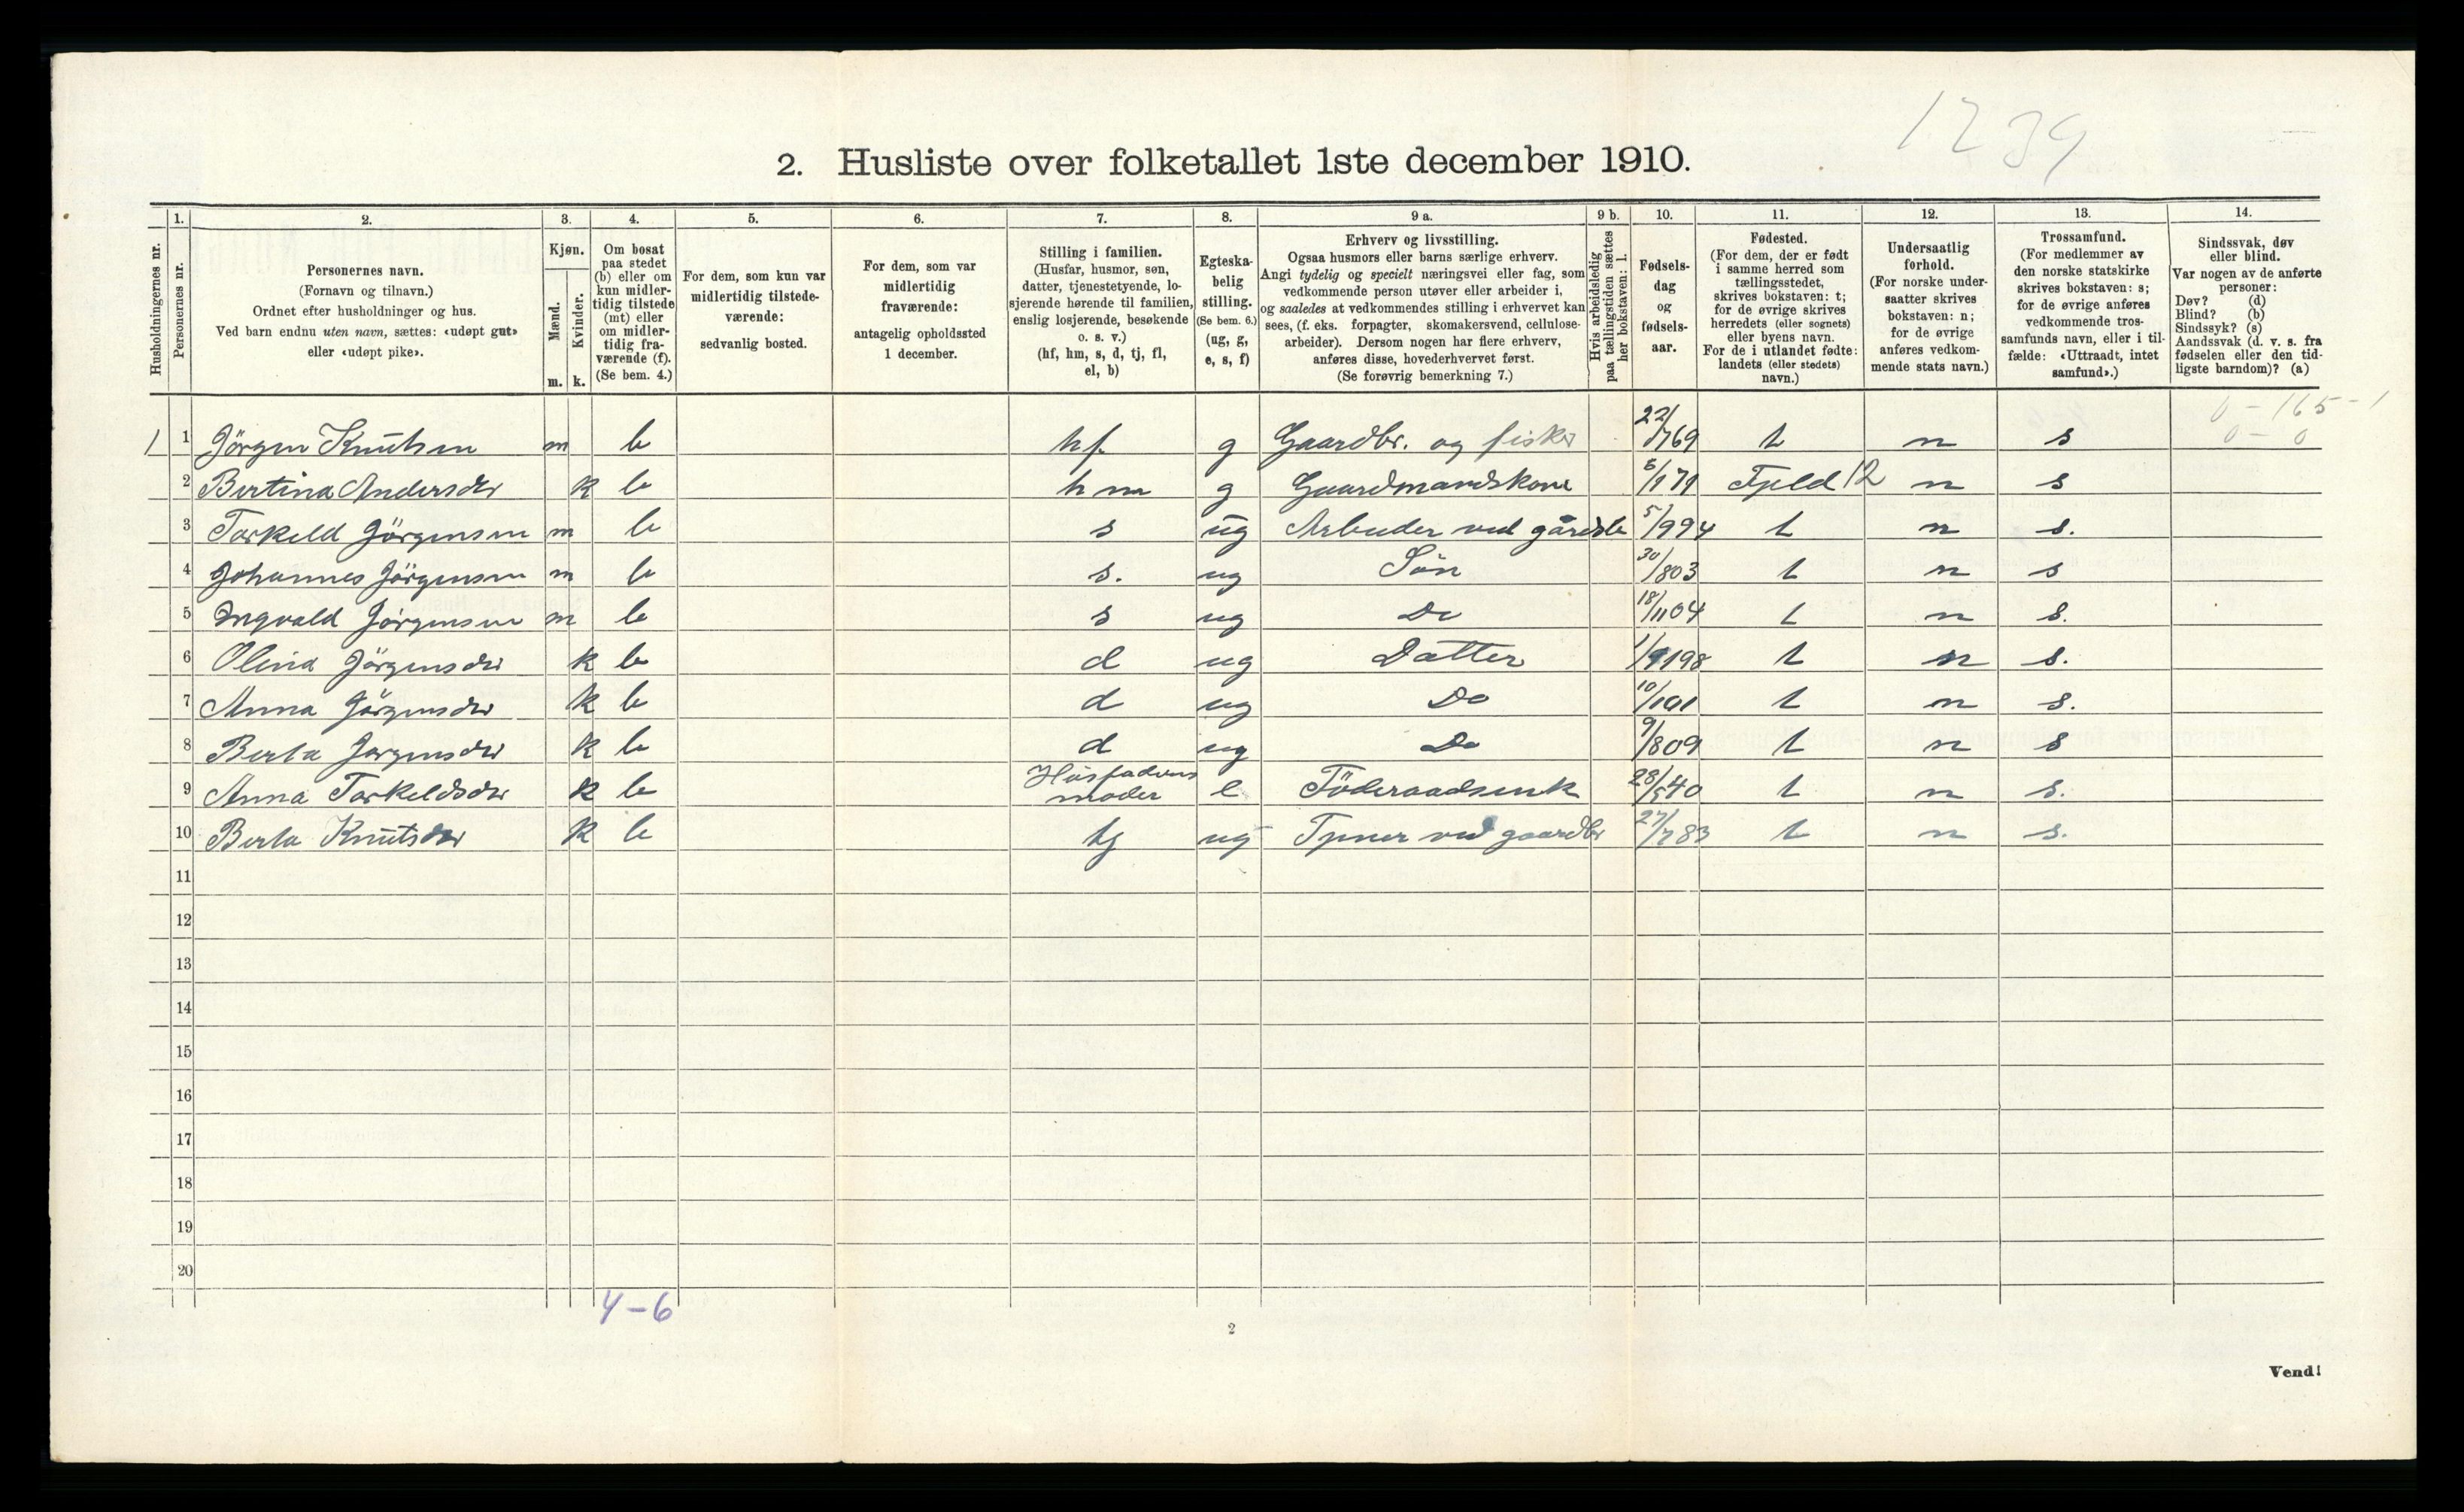 1239
2. Husliste over folketallet 1ste december 1910.
Husholdningernes nr.
1. Personernes nr.
2. Personernes navn.
(Fornavn og tilnavn.)
Ordnet efter husholdninger og hus.
Ved barn endnu uten navn, sættes: «udøpt gut»
eller «udøpt pike».
3. Kjøn.
Mænd. m.
Kvinder. k.
4. Om bosat
paa stedet
(b) eller om
kun midler-
tidig tilstede
(mt) eller
om midler-
tidig fra-
værende (f).
(Se bem. 4.)
5. For dem, som kun var
midlertidig tilstede-
værende:
sedvanlig bosted.
6. For dem, som var
midlertidig
fraværende:
antagelig opholdssted
1 december.
7. Stilling i familien.
(Husfar, husmor, søn,
datter, tjenestetyende, lo-
sjerende hørende til familien,
enslig losjerende, besøkende
o. s. v.)
(hf, hm, s, d, tj, fl,
el, b)
8. Egteska-
belig
stilling.
(Se bem. 6.)
(ug, g,
e, s, f)
9 a. Erhverv og livsstilling.
Ogsaa husmors eller barns særlige erhverv.
Angi tydelig og specielt næringsvei eller fag, som
vedkommende person utøver eller arbeider i,
og saaledes at vedkommendes stilling i erhvervet kan
sees, (f. eks. forpagter, skomakersvend, cellulose-
arbeider). Dersom nogen har flere erhverv,
anføres disse, hovederhvervet først.
(Se forøvrig bemerkning 7.)
9 b. Hvis arbeidsledig
paa tællingstiden sættes
her bokstaven: l.
10. Fødsels-
dag
og
fødsels-
aar.
11. Fødested.
(For dem, der er født
i samme herred som
tællingsstedet,
skrives bokstaven: t;
for de øvrige skrives
herredets (eller sognets)
eller byens navn.
For de i utlandet fødte:
landets (eller stedets)
navn.)
12. Undersaatlig
forhold.
(For norske under-
saatter skrives
bokstaven: n;
for de øvrige
anføres vedkom-
mende stats navn.)
13. Trossamfund.
(For medlemmer av
den norske statskirke
skrives bokstaven: s;
for de øvrige anføres
vedkommende tros-
samfunds navn, eller i til-
fælde: «Uttraadt, intet
samfund».)
14. Sindssvak, døv
eller blind.
Var nogen av de anførte
personer:
Døv? (d)
Blind? (b)
Sindssyk? (s)
Aandssvak (d. v. s. fra
fødselen eller den tid-
ligste barndom)? (a)
0 - 165 - 1
0 - 0
1 1 Jörgen Knutsen m b hf. g Gaardbr. og fisker 22/769 t n s
2 Bertina Andersdtr k b hm g Gaardmandskone 8/179 Fjeld 12 n s
3 Torkeld Jörgensen m b s ug Arbeider ved gårdsbr 5/994 t n s.
4 Johannes Jörgensen m b s. ug Sön 30/803 t n s
5 Ingvald Jörgensen m b s ug Do 18/1104 t n s.
6 Olina Jörgensdtr k b d ug Datter t n s.
7 Anna Jörgensdtr k b d ug Do 10/101 t n s.
8 Berta Jörgensdtr k b d ug Do 9/809 t n s
9 Anna Torkeldsdtr k b Husfaderens moder e Föderaadsenk 28/540 t n s.
10 Berta Knutsdtr k b tj ug Tjener ved gaardbr 27/783 t n s.
11
12
13
14
15
16
17
18
19
20
4-6
2
Vend!